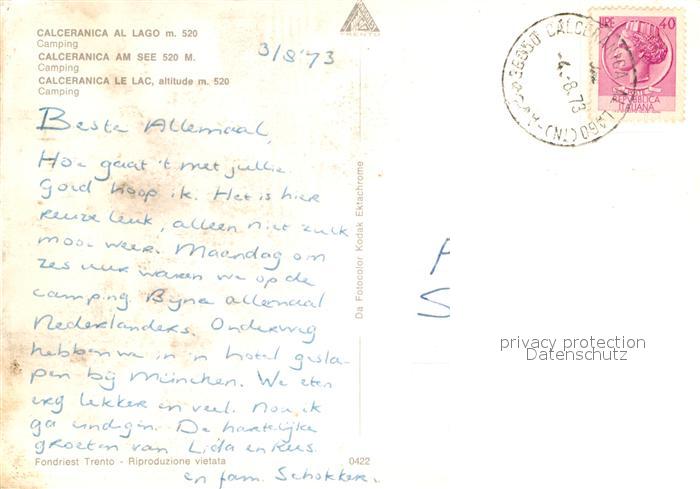 CALCERANICA AL LAGO m. 520
Camping
CALCERANICA AM SEE 520 M.
Camping
CALCERANICA LE LAC, altitude m. 520
Camping
TRENTO
3/8 '73
38050 CALCERANICA AL LAGO (TN)
-4.-8.73
LIRE 40
POSTE
REPVBBLICA
ITALIANA
Beste Allemaal,
Hoe gaat 't met jullie.
Goed hoop ik. Het is hier
reuze leuk, alleen niet zulk
mooi weer. Maandag om
zes uur waren we op de
camping. Bijna allemaal
Nederlanders. Onderweg
hebben we in 'n hotel gesla-
pen bij München. We eten
erg lekker en veel. Nou ik
ga eindigen. De hartelijke
groeten van Lida en Kees
en fam. Schokker.
Da Fotocolor Kodak Ektachrome
Fondriest Trento - Riproduzione vietata 0422
privacy protection
Datenschutz